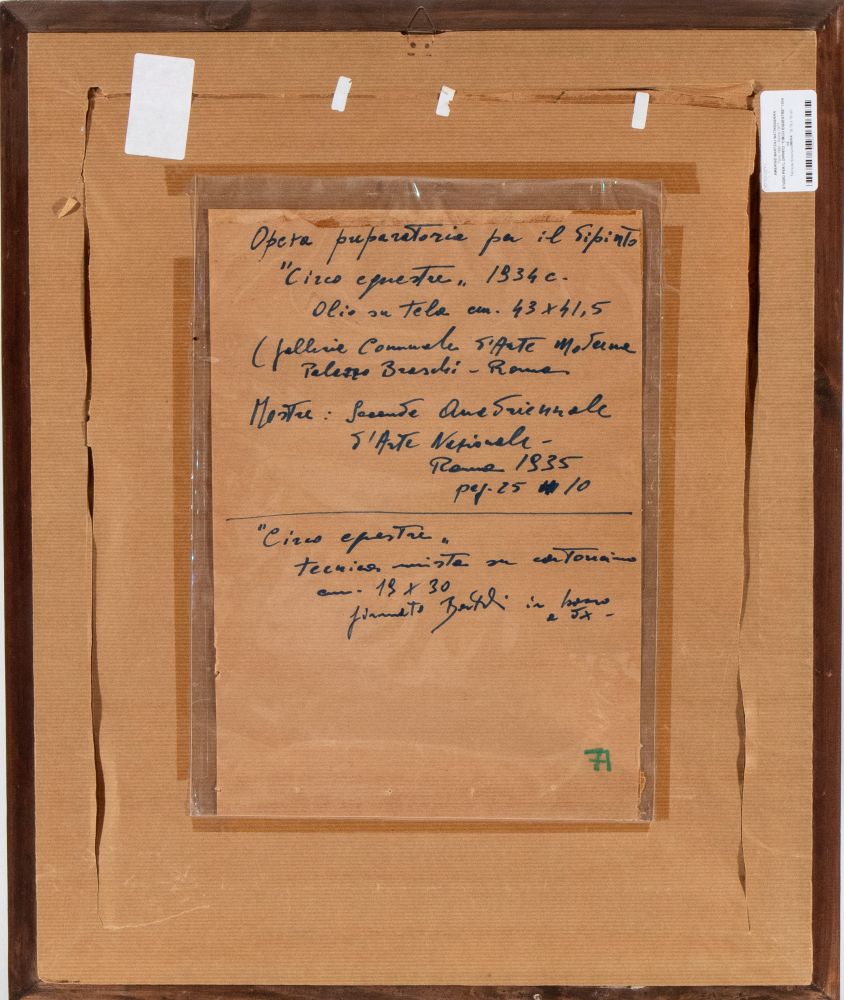 Opera preparatoria per il dipinto
"Circo equestre„ 1934 c.
Olio su tela cm. 43 x 41,5
(Galleria Comunale d'Arte Moderna
Palazzo Braschi - Roma
Mostre: Seconda Quadriennale
d'Arte Nazionale -
Roma 1935
pag. 25 10
"Circo equestre„
tecnica mista su cartoncino
cm. 19 x 30
firmato in basso
a Dx -
71